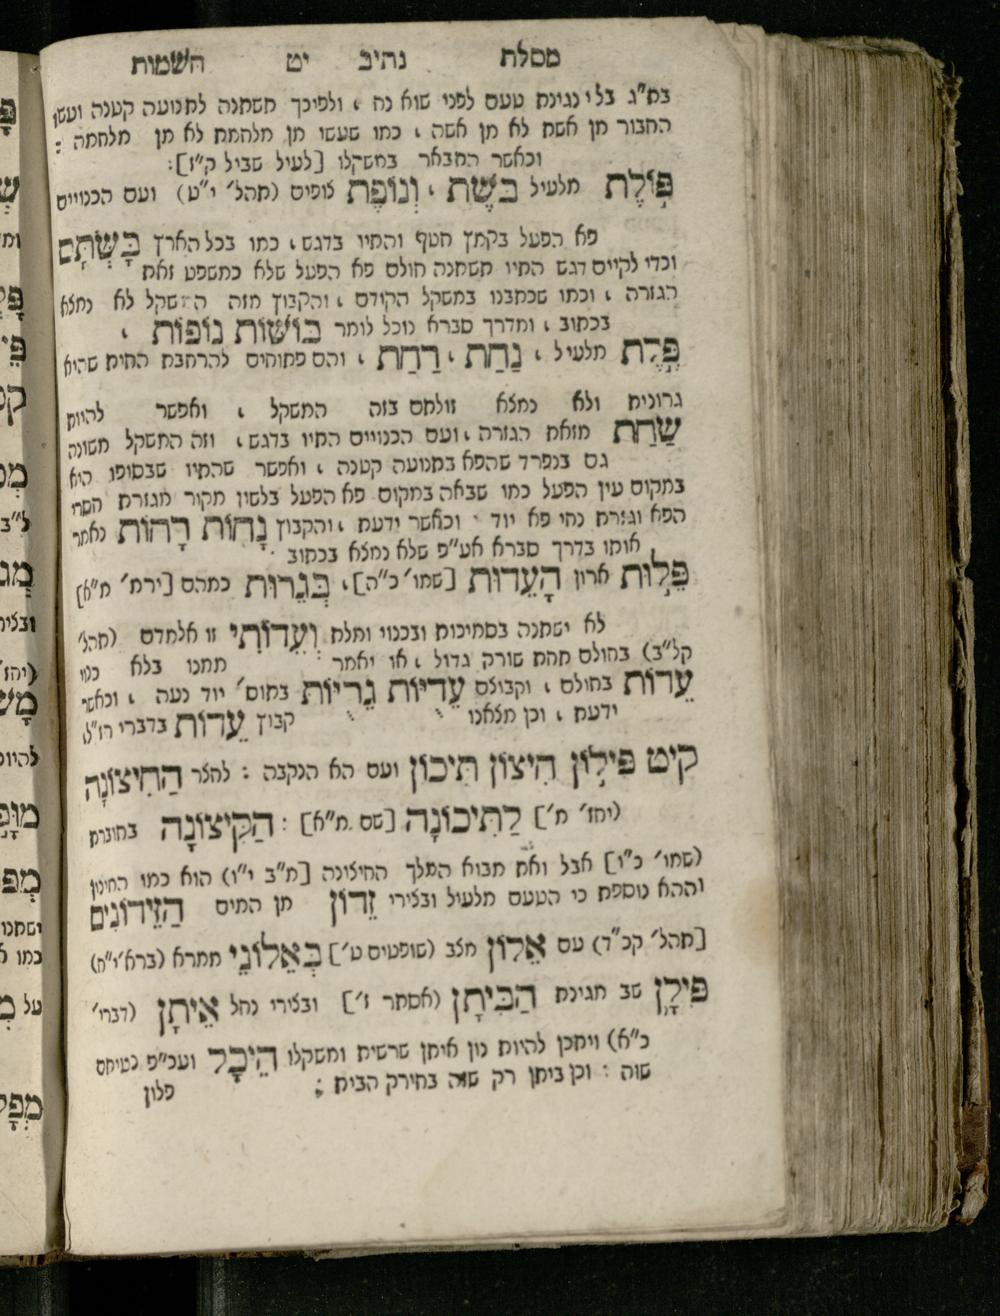 מסלת נתיב יט השמות
בת״ג בלי נגינת טעם לפני שוא נח , ולפיכך תשתנה לתנועה קטנה ועשו
החבור מן אשת לא מן אשה , כמו שעשו מן מלחמת לא מן מלחמה :
וכאשר התבאר במשקלו [לעיל שביל ק״ז]:
פּוֹלֶת מלעיל בֹּשֶׁת , וְנוֹפֶת צופים (תהל׳ י״ט) ועם הכנויים
פא הפעל בקמץ חטף והתיו בדגש , כמו בכל הארץ בָּשְׁתָּם
וכדי לקיים דגש התיו תשתנה חולם פא הפעל שלא כמשפט זאת
הגזרה , וכמו שכתבנו במשקל הקודם , והקבוץ מזה המשקל לא נמצא
בכתוב , ומדרך סברא נוכל לומר בּוֹשׁוֹת נוֹפוֹת ,
פֶּלֶת מלעיל , נַחַת , רַחַת , והם פתוחים להרחבת החית שהיא
גרונית ולא נמצא זולתם בזה המשקל , ואפשר להיות
שַׁחַת מזאת הגזרה , ועם הכנויים התיו בדגש , וזה המשקל משונה
גם בנפרד שהפא בתנועה קטנה , ואפשר שהתיו שבסופו היא
במקום עין הפעל כמו שבאה במקום פא הפעל בלשון מקור מגזרת חסרי
הפא וגזרת נחי פא יוד וכאשר ידעת , והקבוץ נָחוֹת רָהוֹת נאמר
אותו בדרך סברא אע״פ שלא נמצא בכתוב
פֵּלוּת ארון הָעֵדוּת [שמו׳ כ״ה] , בְּגֵרוּת כמהם [ירמ׳ מ״א]
לא ישתנה בסמיכות ובכנוי ומלת וְעֵדוֹתִי זו אלמדם (תהל׳
קל״ב) בחולם תחת שורק גדול , או יאמר ממנו בלא כנוי
עֵדוֹת בחולם , וקבוצם עֵדֻיוֹת גֵרֻיוֹת בתוס׳ יוד נעה , וכאשר
ידעת , וכן מצאנו קבוץ עֵדוֹת בדברי רז״ל
קיט פִּילוֹן חִיצוֹן תִּיכוֹן ועם הא הנקבה : לחצר הַחִיצוֹנָה
(יחז׳ מ׳] לַתִּיכוֹנָה [שם מ״א] : הַקִּיצוֹנָה בחוברת
(שמו׳ כ״ו] אבל ואת מבוא המלך החיצונה [מ״ב י״ו) הוא כמו החיצון
וההא נוספת כי הטעם מלעיל ובצירי זֵדוֹן מן המים הַזֵּידוֹנִים
[תהל׳ קכ״ד) עם אֵלוֹן מצב (שופטים ט׳] בְּאֵלוֹנֵי ממרא (ברא׳ י״ח)
פִּילָן שב מגינת הַבִּיתָן (אסתר ז׳] ובצירי נחל אֵיתָן (דברי׳
כ״א) ויתכן להיות נון איתן שרשית ומשקלו הֵיכָל ועכ״פ נטייתם
שוה : וכן ביתן רק שזה בחירק הבית :
פלון